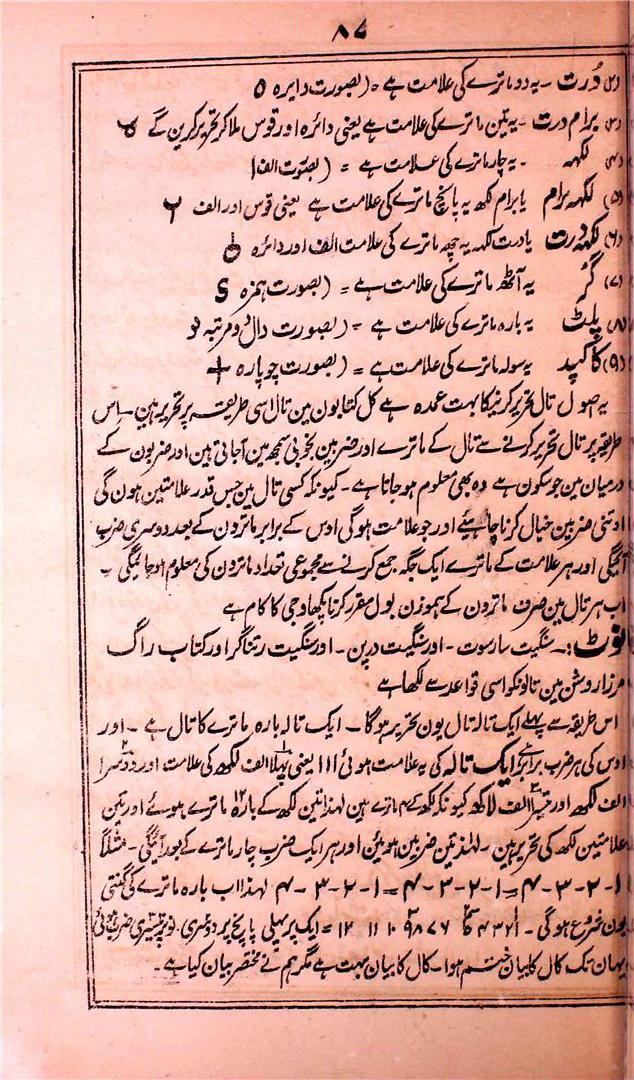 ۸۷
(۲) دُرت - یہ دو ماترے کی علامت ہے = (بصورت دایرہ o
(۳) برام درت - یہ تین ماترے کی علامت ہے یعنی دائرہ اور قوس ملا کر تحریر کرین گے
(۴) لگھہ - یہ چار ماترے کی علامت ہے = (بصوَرت الف ا
(۵) لگھہ برام یا برام لگھ یہ پانچ ماترے کی علامت ہے یعنی قوس اور الف
(۶) لگھہ دُرت یا درت لگھہ یہ چھہ ماترے کی علامت الف اور دائرہ
(۷) گُر یہ آٹھ ماترے کی علامت ہے = (بصورت ہمزہ S
(۸) پلٹ یہ بارہ ماترے کی علامت ہے = (بصورت دال دو مرتبہ
(۹) کاکپد یہ سولہ ماترے کی علامت ہے = (بصورت چوپارہ +
یہ اصول تال تحریر کرنیکا بہت عمدہ ہے کل کتابون مین تال اسی طریقہ پر تحریر ہین - اِس
طریقہ پر تال تحریر کرنے سے تال کے ماترے اور ضربین بخوبی سمجھ مین آ جاتی ہین اور ضربون کے
درمیان مین جو سکون ہے وہ بھی معلوم ہو جاتا ہے - کیونکہ کسی تال مین جس قدر علامتین ہون گی
اوتنی ضربین خیال کرنا چاہیئے اور جو علامت ہو گی اوس کے برابر ماترون کے بعد دوسری ضرب
آئیگی اور ہر علامت کے ماترے ایک جگہ جمع کرنے سے مجموعی تعداد ماترون کی معلوم ہو جائیگی -
اب ہر تال مین صرف ماترون کے ہموزن بول مقرر کرنا پکھاوجی کا کام ہے
نوٹ :- سنگیت سارسوت - اور سنگیت درپن - اور سنگیت رتناگر اور کتاب راگ
مرزا روشن مین تالونکو اسی قواعد سے لکھا ہے
اس طریقہ سے پہلے ایک تالہ تال یون تحریر ہو گا - ایک تالہ بارہ ماترے کا تال ہے - اور
اوس کی ہر ضرب برابر ہے ایک تالہ کی یہ علامت ہوئی ااا یعنی پہلا الف لگھ کی علامت اور دوسرا
الف لگھ اور تیسرا الف لاگھ کیونکہ لگھ کے ۴ ماترے ہین لہذا تین لگھ کے بارہ ماترے ہوئے اور تین
علامتین لگھ کی تحریر ہین - لہٰذا تین ضربین ہوئین اور ہر ایک ضرب چار ماترے کے بعد آئیگی - مثلاً
۱-۲-۳-۴=۱-۲-۳-۴=۱-۲-۳-۴ لہذا اب بارہ ماترے کی گنتی
یون شروع ہو گی - ۱ ۲ ۳ ۴ ۵ ۶ ۷ ۸ ۹ ۱۰ ۱۱ ۱۲ = ایک پر پہلی پانچ پر دوسری نو پر تیسری ضرب ہوئی
یہان تک کال کا بیان ختم ہوا - کال کا بیان بہت ہے مگر ہم نے مختصر بیان کیا ہے -